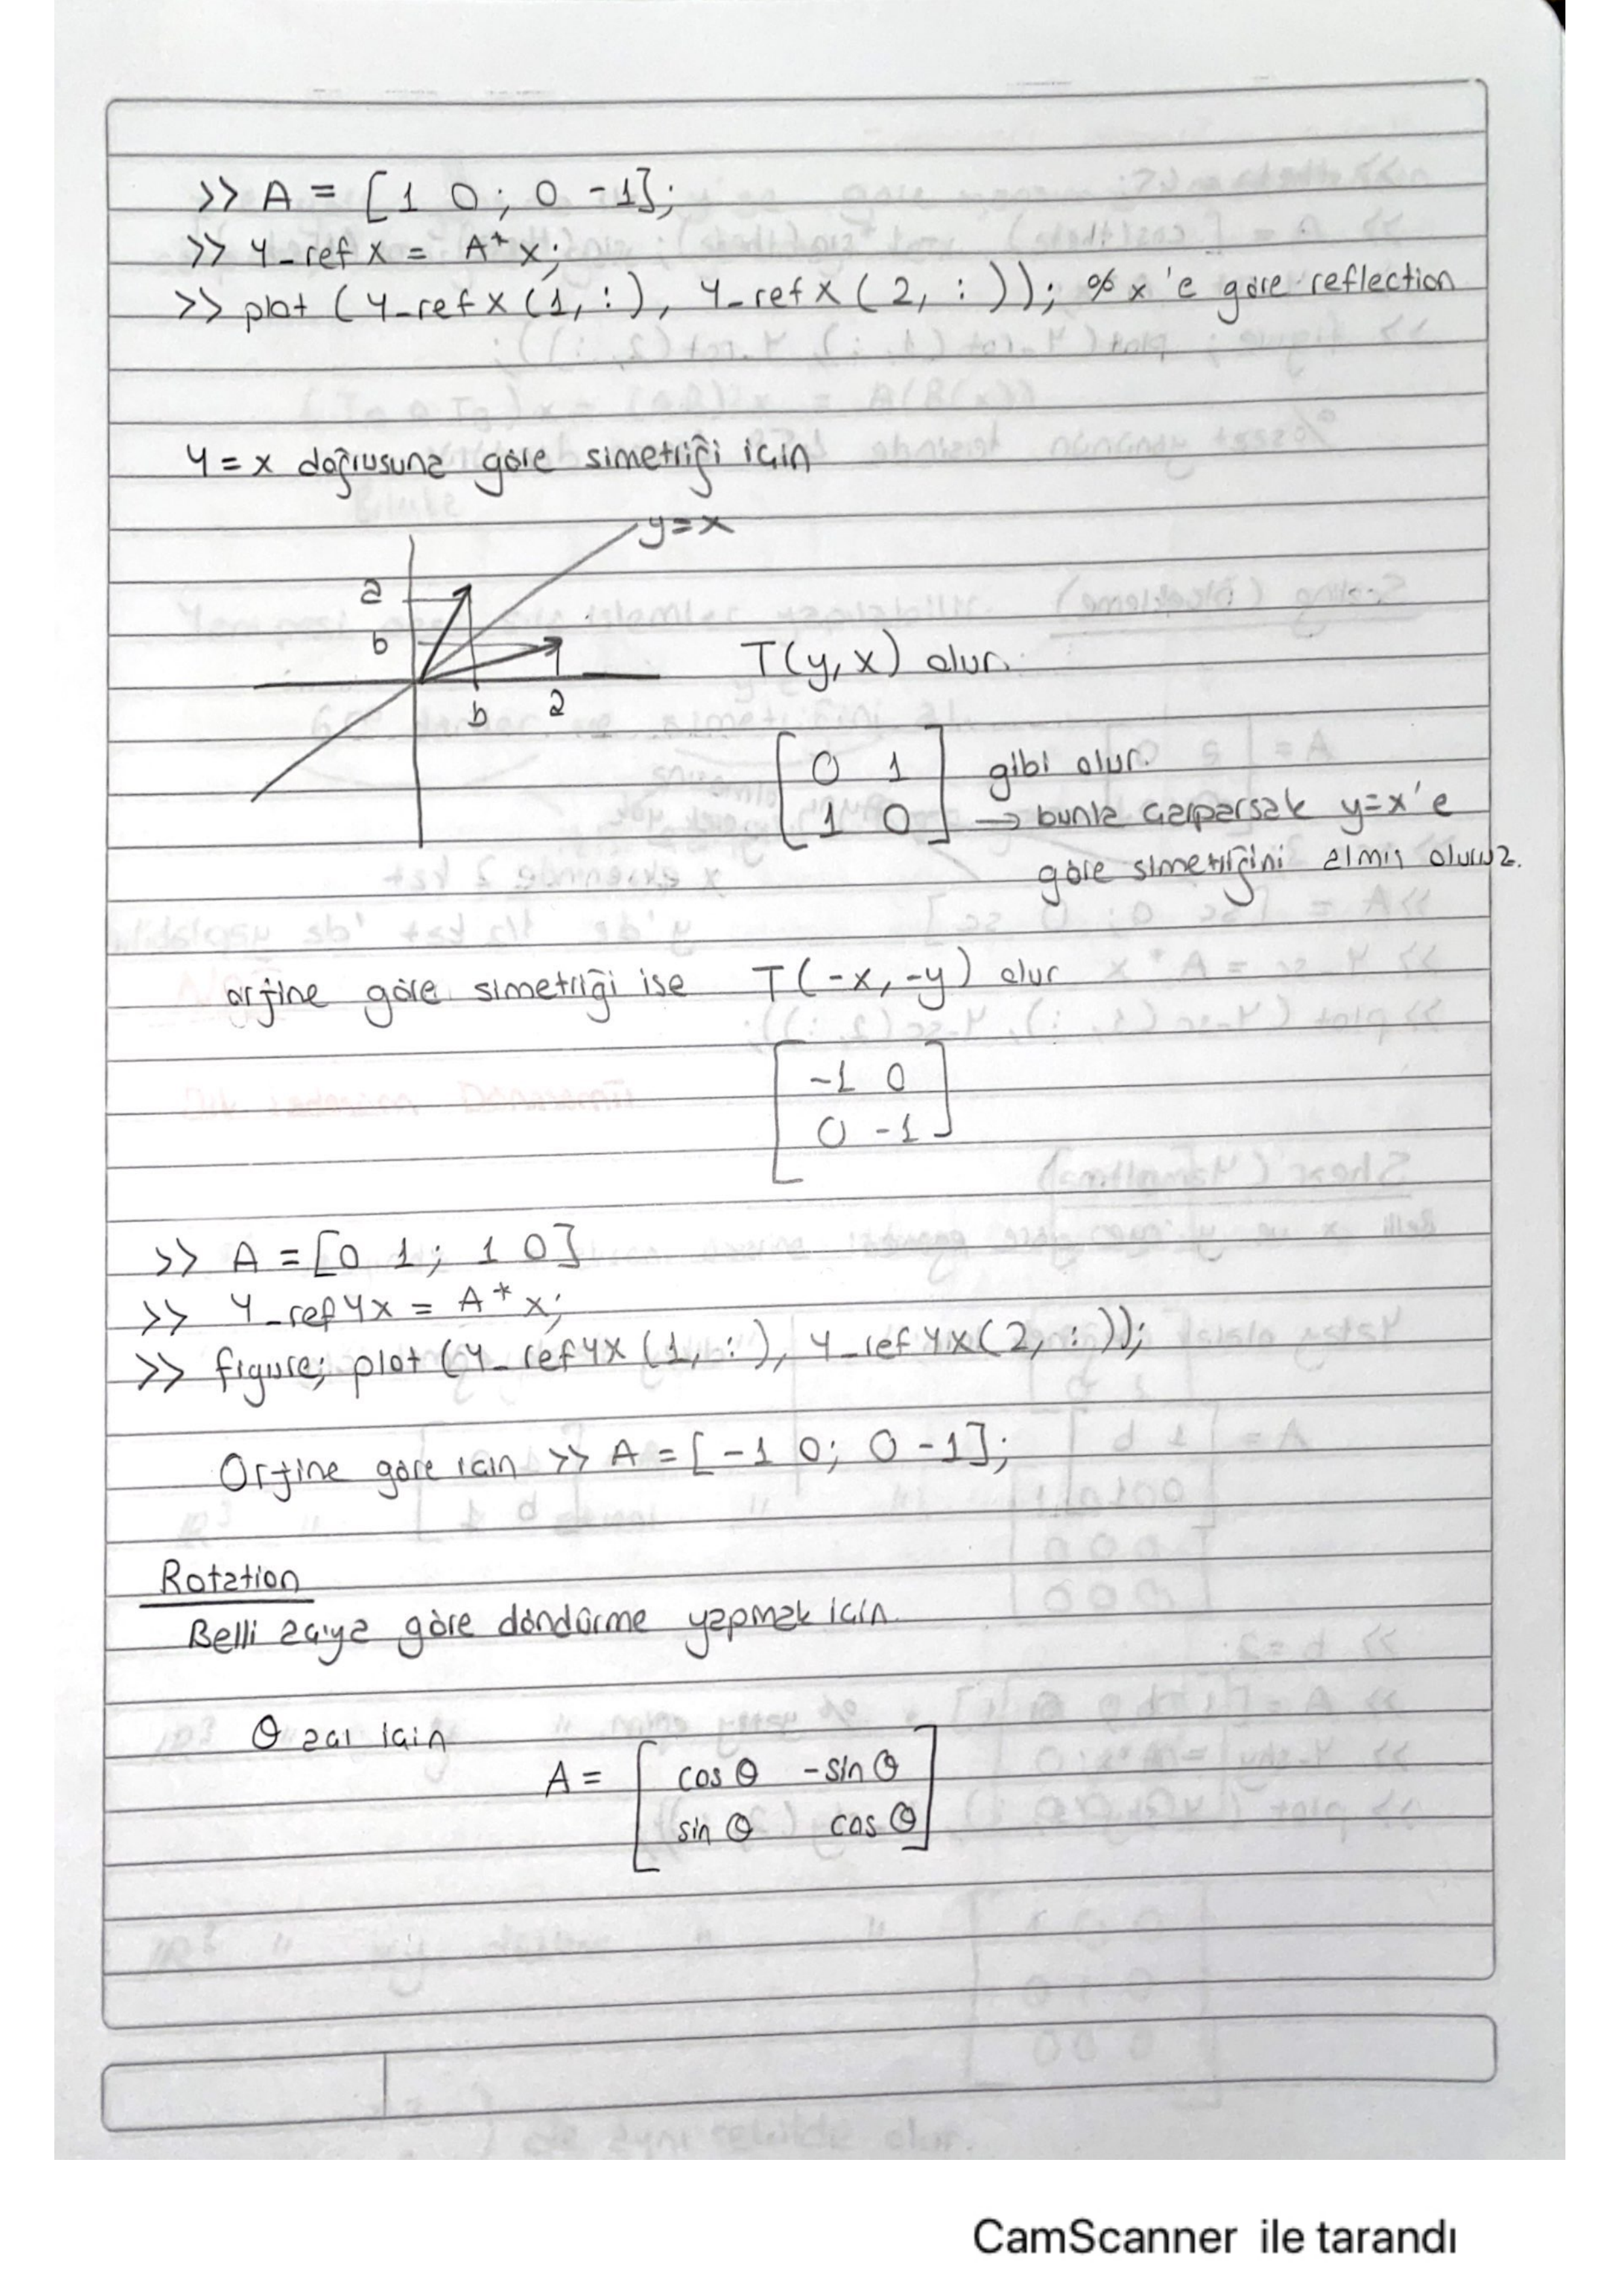 >> A = [1 0; 0 -1];
>> Y_refx = A*x;
>> plot (Y_refx(1,:), Y_refx(2,:)); % x'e göre reflection
Y=x doğrusuna göre simetriği için
y=x
a
b
T(y,x) olur.
b a
0 1 gibi olur.
1 0 → bunla çarparsak y=x'e
göre simetriğini almış oluruz.
orjine göre simetriği ise T(-x,-y) olur
-1 0
0 -1
>> A = [0 1; 1 0]
>> Y_refYx = A*x;
>> figure; plot (Y_refYx(1,:), Y_refYx(2,:));
Orjine göre için >> A = [-1 0; 0 -1];
Rotation
Belli açıya göre döndürme yapmak için.
θ açı için
A = cosθ -sinθ
sinθ cosθ
CamScanner ile tarandı